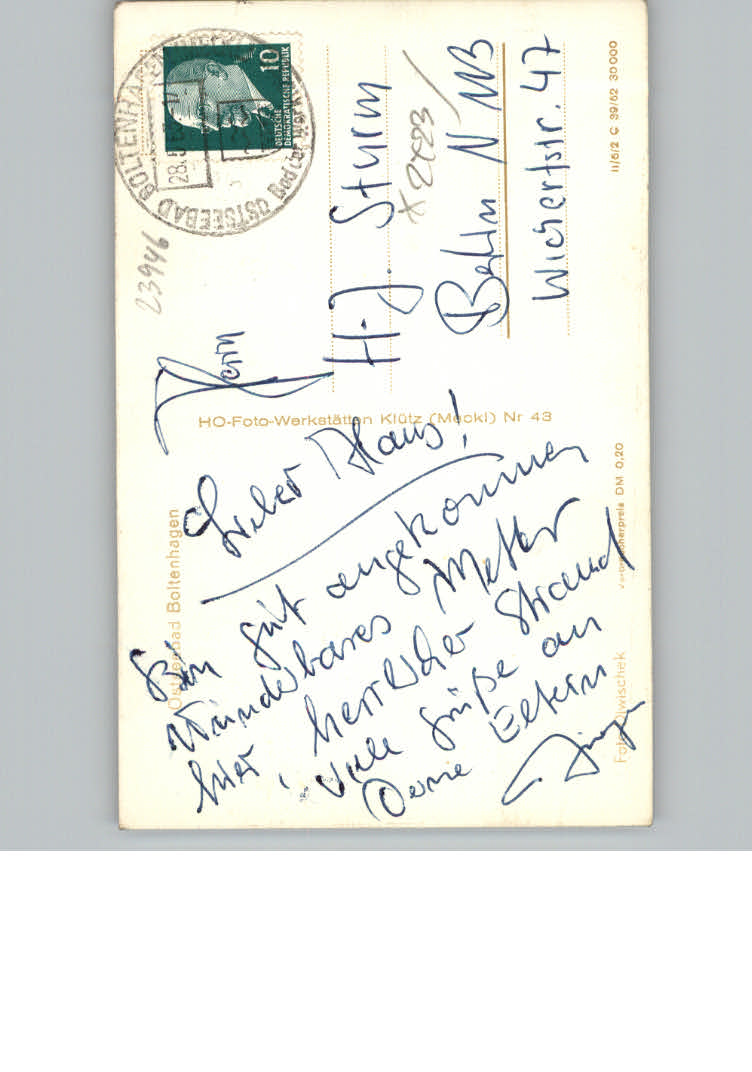 Ostseebad Boltenhagen
Lieber Klaus!
Bin gut angekommen
Wunderbares Wetter
hier, herrlicher Strand
Viele Grüße an
Deine Eltern
Foto Olwischek
Verbraucherpreis DM 0,20
HO-Foto-Werkstätten Klütz (Meckl) Nr 43
23946
OSTSEEBAD BOLTENHAGEN
28.5.
10
DEUTSCHE
DEMOKRATISCHE REPUBLIK
Herrn
H-J. Sturm
* 2423
Berlin N 113
Wichertstr. 47
II/5/2 C 39/62 30000